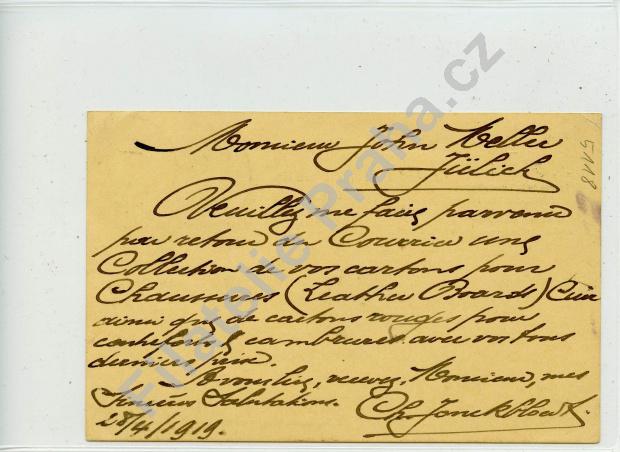 Monsieur John Heller
Jülich
5118
Veuillez me faire parvenir
par retour du Courrier une
Collection de vos cartons pour
Chaussures (Leather Boards) Cuir
ainsi que de cartons rouges pour
contreforts & cambrures avec vos tous
derniers prix.
recevez, Monsieur, mes
Sincères Salutations.
28/4/1919.
Filatelie Praha.cz